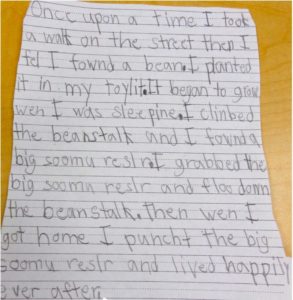 Once upon a time I took
a walk on the street then I
fel I fownd a bean. I planted
it in my toylit. It began to grow
wen I was sleepine. I clinbed
the beanstalk and I fownd a
big soomu reslr. I grabbed the
big soomu reslr and flos down
the beanstalk. Then wen I
got home I puncht the big
soomu reslr and lived happily
ever after.